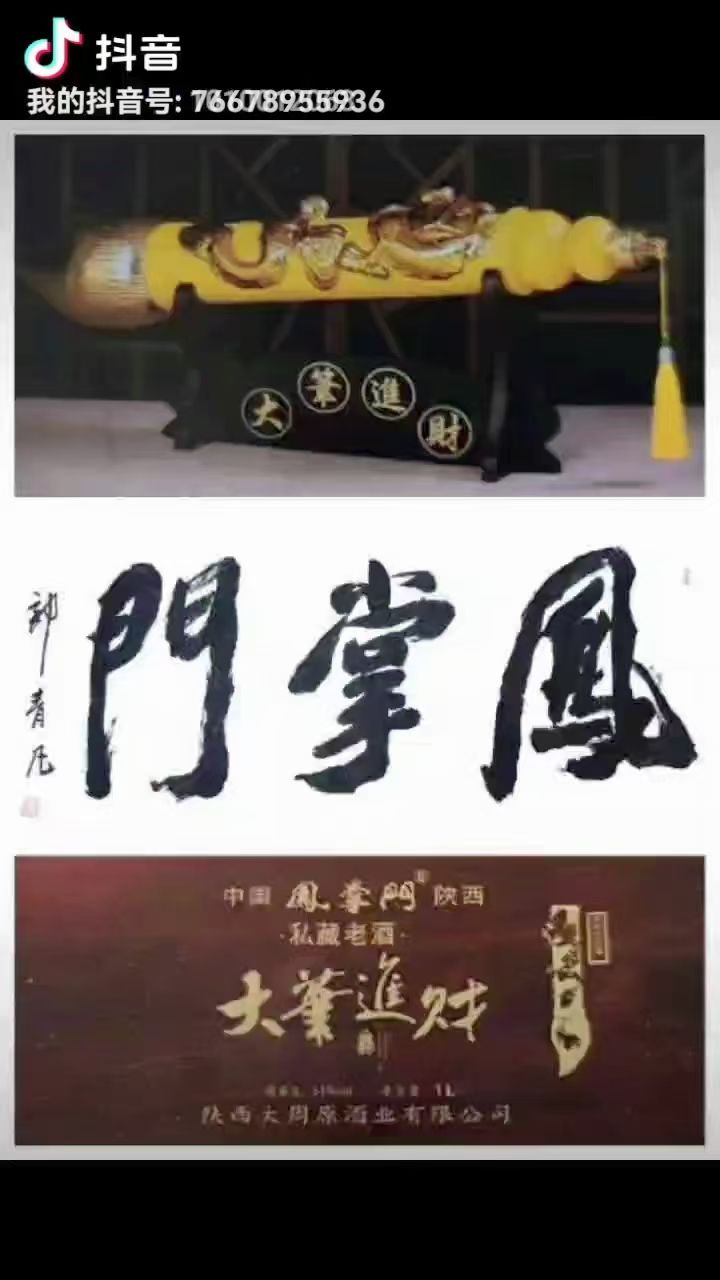 抖音
我的抖音号:
大筆進財
鳳掌門
郭青凡
中国 鳳掌門 陕西
·私藏老酒·
大筆進财
1L
陕西大周原酒业有限公司